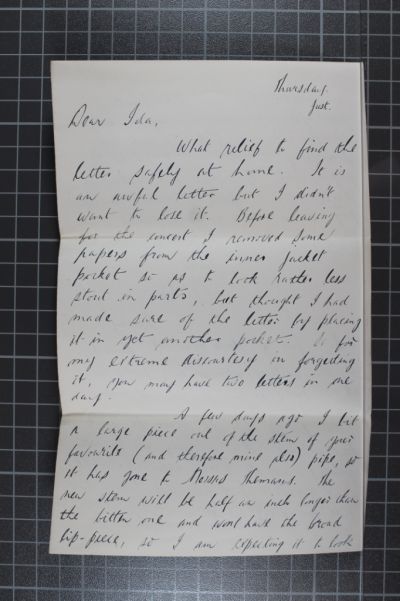 Thursday.
Just.
Dear Ida,
What relief to find the
letter safely at home. It is
an awful letter but I didn't
want to lose it. Before leaving
for the concert I removed some
papers from the inner jacket
pocket so as to look rather less
stout in parts, but thought I had
made sure of the letter by placing
it in yet another pocket. So for
my extreme discourtesy in forgetting
it, you may have two letters in one
day.
A few days ago I bit
a large piece out of the stem of your
favourite (and therefore mine also) pipe, so
it has gone to Messrs Thomans. The
new stem will be half an inch longer than
the bitten one and wont have the broad
lip-piece, so I am expecting it to look